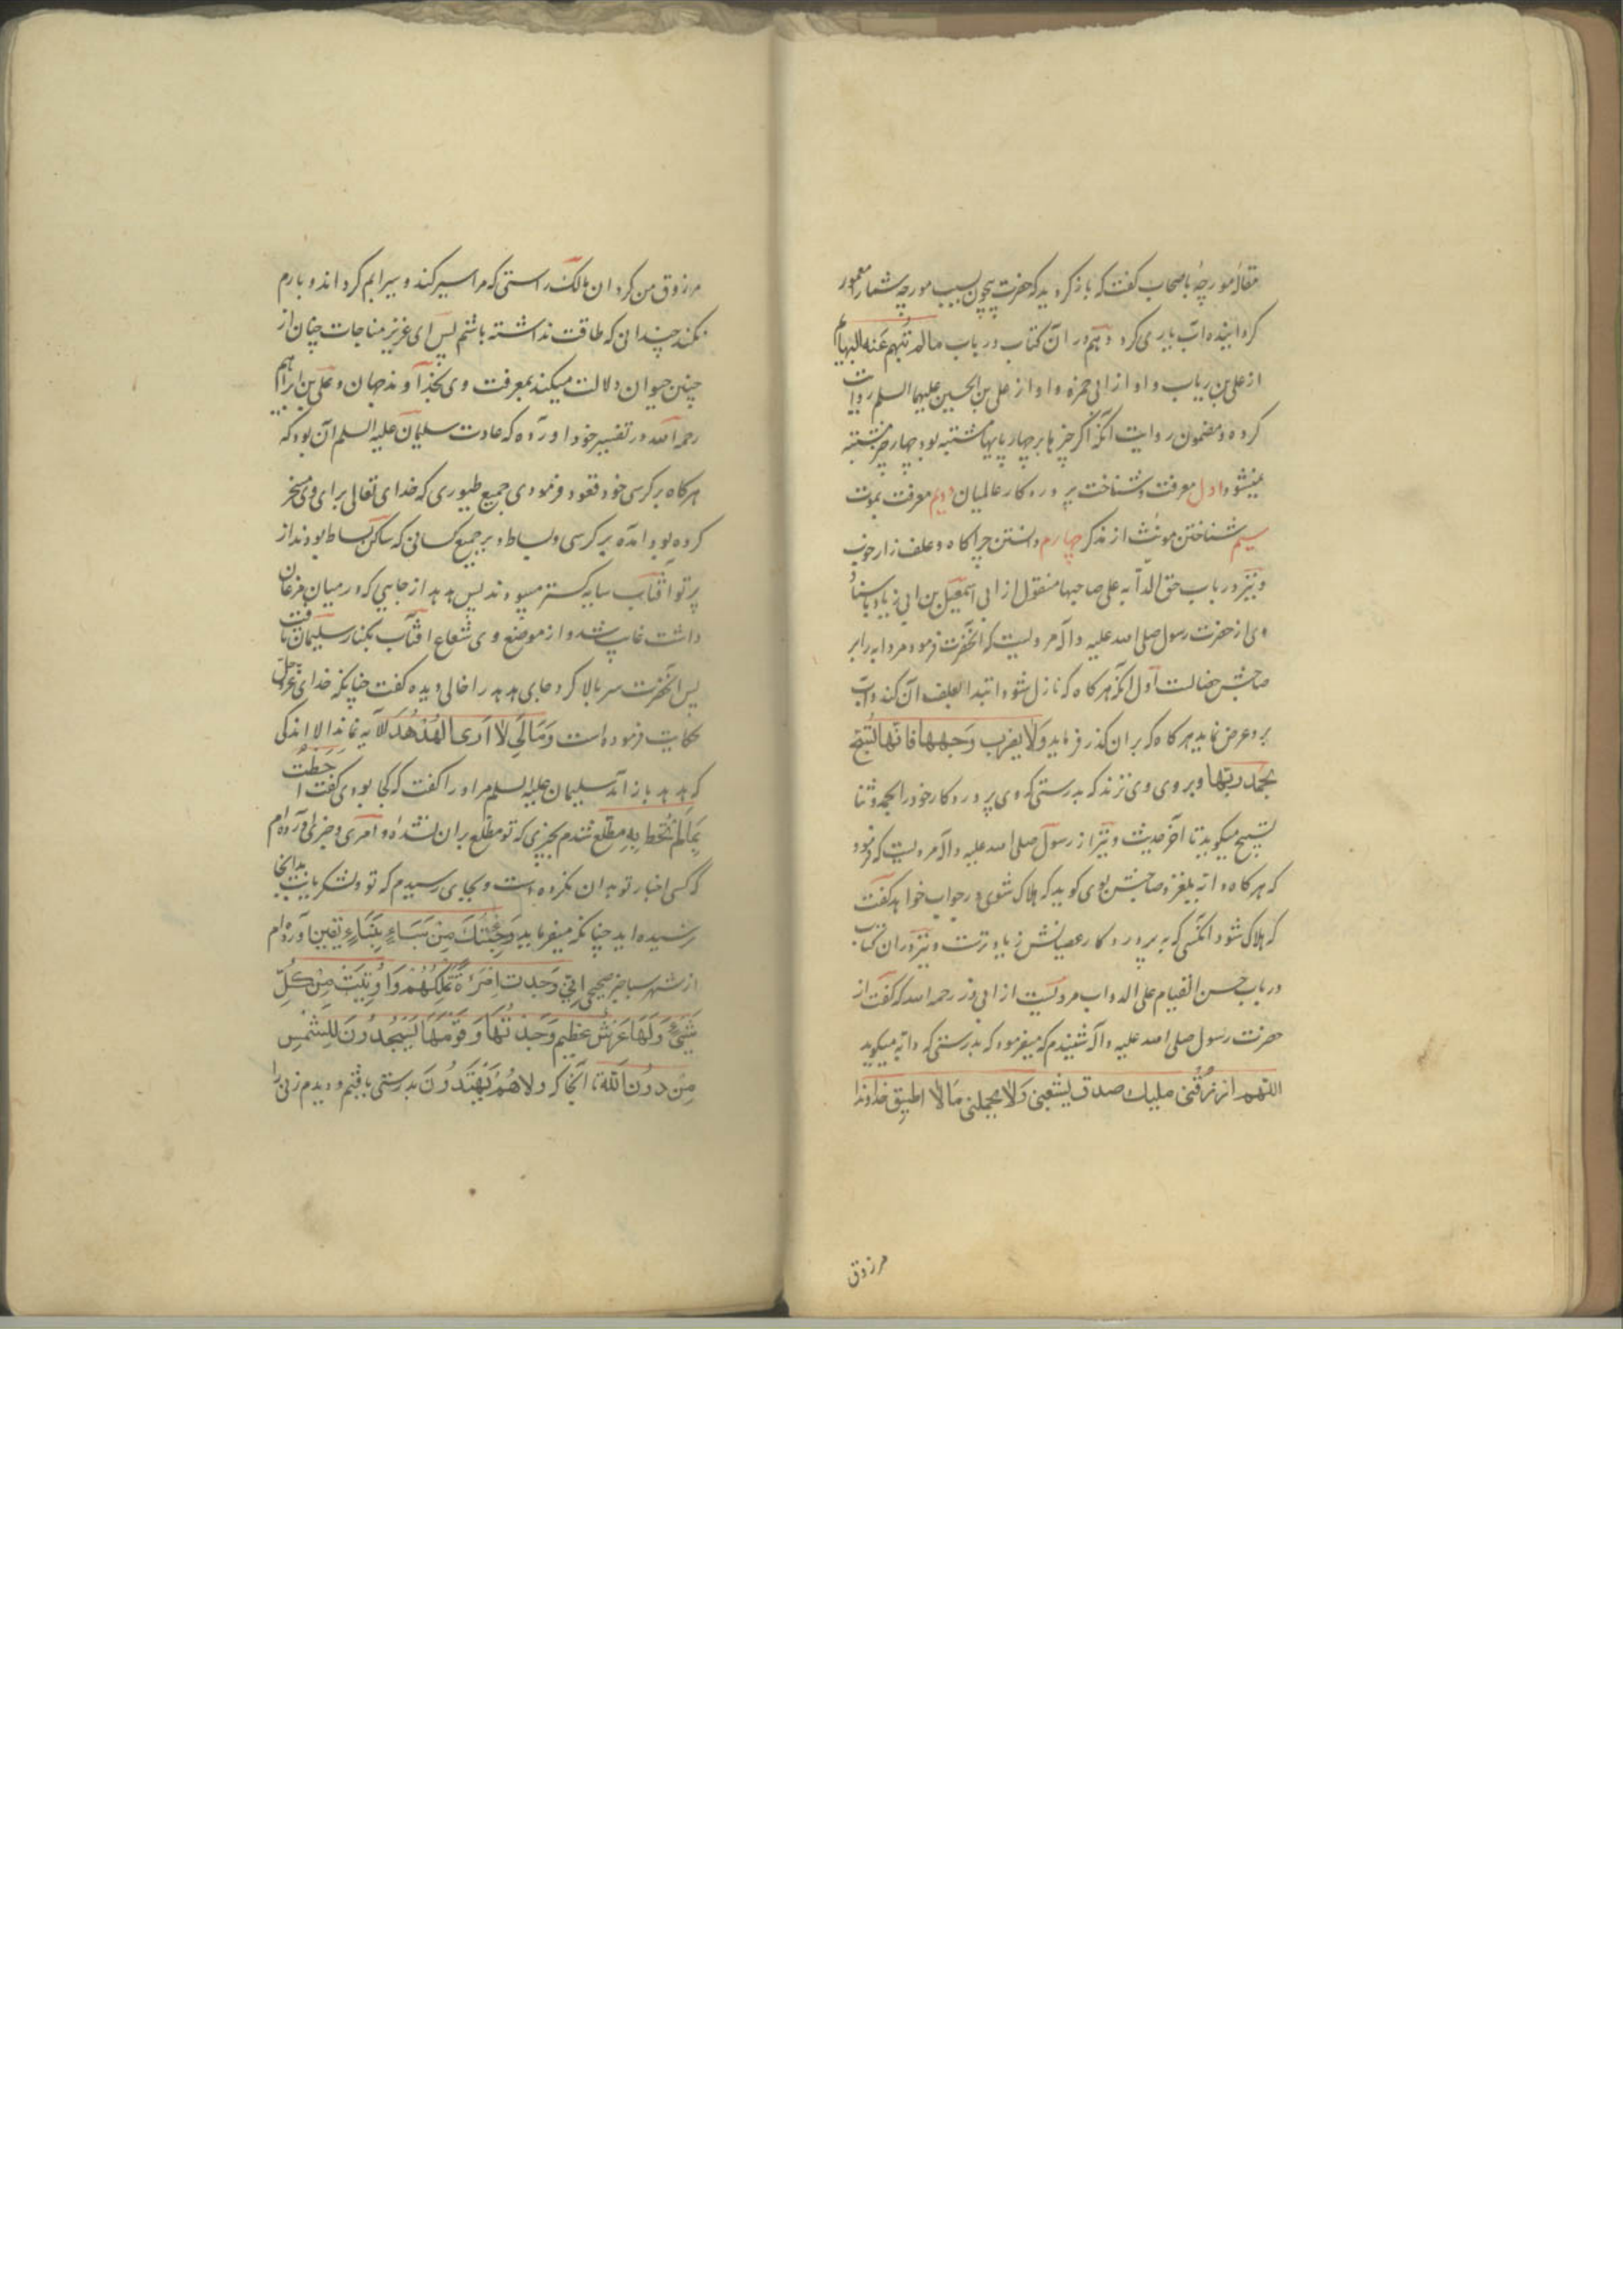 مقالهٔ مورچه باصحاب گفت که باز کردید که حضرت بیچون بسبب مورچه شما را معمور
کردانیده اب یاری کرد و هم در ان کتاب در باب مالم تبهم عنه البهایم
از علی بن ریاب و او از ابی حمزه و او از علی بن الحسین علیهما السلم روایت
کرده و مضمون روایت آنکه اگر چیزها بر چهارپایها مشتبه بود چهار چیز مشتبه
نمیشود اول معرفت و شناخت پروردکار عالمیان دویم معرفت بموت
سیم شناختن مونث از مذکر چهارم دانستن چراکاه و علف زار خوب
و نیز در باب حق الدابه علی صاحبها منقول از ابی اسمعیل بن ابی زیاد باسناد
وی از حضرت رسول صلی الله علیه و آله مرویست که آنحضرت فرمود مر دابه را بر
صاحبش خصالست اول انکه هر کاه که نازل شود ابتدا بعلف ان کند و آب
برو عرض نماید هر کاه که بران کذر فرماید ولا یضرب وجهها فانها تسبح
بحمد ربها و بر روی وی نزند که بدرستی که وی پروردکار خود را بحمد و ثنا
تسبیح میکوید تا آخر حدیث و نیز از رسول صلی الله علیه و آله مرویست که فرمود
که هر کاه دابه بلغزد و صاحبش بوی کوید که هلاک شوی در جواب خواهد کفت
که هلاک شود انکسی که به پروردکار عصیانش زیادترست و نیز در ان کتاب
در باب حسن القیام علی الدواب مرویست از ابی ذر رحمه الله که کفت از
حضرت رسول صلی الله علیه و آله شنیدم که میفرمود که بدرستی که دابه میکوید
اللهم ارزقنی ملیک صدق یشبعنی ولا یحملنی مالا اطیق خداوندا
مرزوق
مرزوق من کردان مالک راستی که مرا سیر کند و سیرابم کرداند و بارم
نکند چندانی که طاقت نداشته باشم پس ای عزیز مناجات چنان از
چنین حیوان دلالت میکند بمعرفت وی بخداوند جهان و علی بن ابراهیم
رحمه الله در تفسیر خود اورده که عادت سلیمان علیه السلم آن بود که
هرکاه بر کرسی خود قعود فرمودی جمیع طیوری که خدای تعالی برای وی مسخر
کرده بود امده بر کرسی و بساط و بر جمیع کسانی که ساکن بساط بودند از
پرتو آفتاب سایه کستر میبودند پس هدهد از جایی که در میان مرغان
داشت غایب شد و از موضع وی شعاع افتاب بکنار سلیمان تافت
پس آنحضرت سر بالا کرد جای هدهد را خالی دیده کفت چنانکه خدای عز و جل
حکایت فرموده است وما لی لا اری الهدهد الآیه نماند الا اندکی
که هدهد باز آمد سلیمان علیه السلم مر او را کفت که کجا بودی کفت احطت
بما لم تحط به مطلع شدم بچیزی که تو مطلع بران نشدهٔ و امری و خبری آورده ام
که کسی اخبار تو بدان نکرده است و بجای رسیدم که تو و لشکریانت بدانجا
نرسیده اید چنانکه میفرماید وجئتک من سباء بنباء یقین آورده ام
از شهر سبا خبر صحیحی انی وجدت امرءة تملکهم و اوتیت من کل
شیء ولها عرش عظیم وجدتها وقومها یسجدون للشمس
من دون الله تا آنجا که ولا هم یهتدون بدرستی یافتم و دیدم زنی را